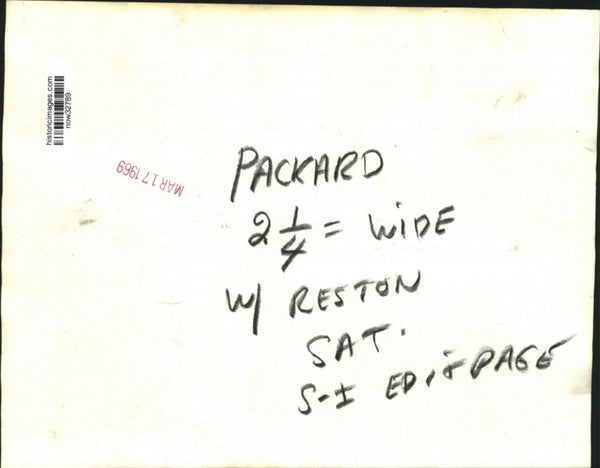 historicimages.com
now32789
MAR 17 1969
PACKARD
2 1/4 = WIDE
W/ RESTON
SAT.
S-I EDIT PAGE